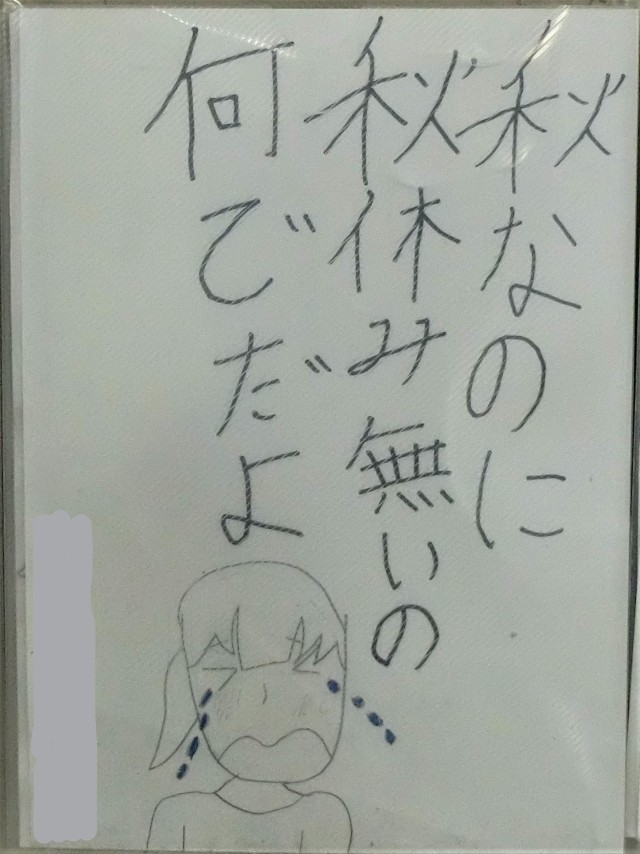 秋なのに
秋休み無いの
何でだよ